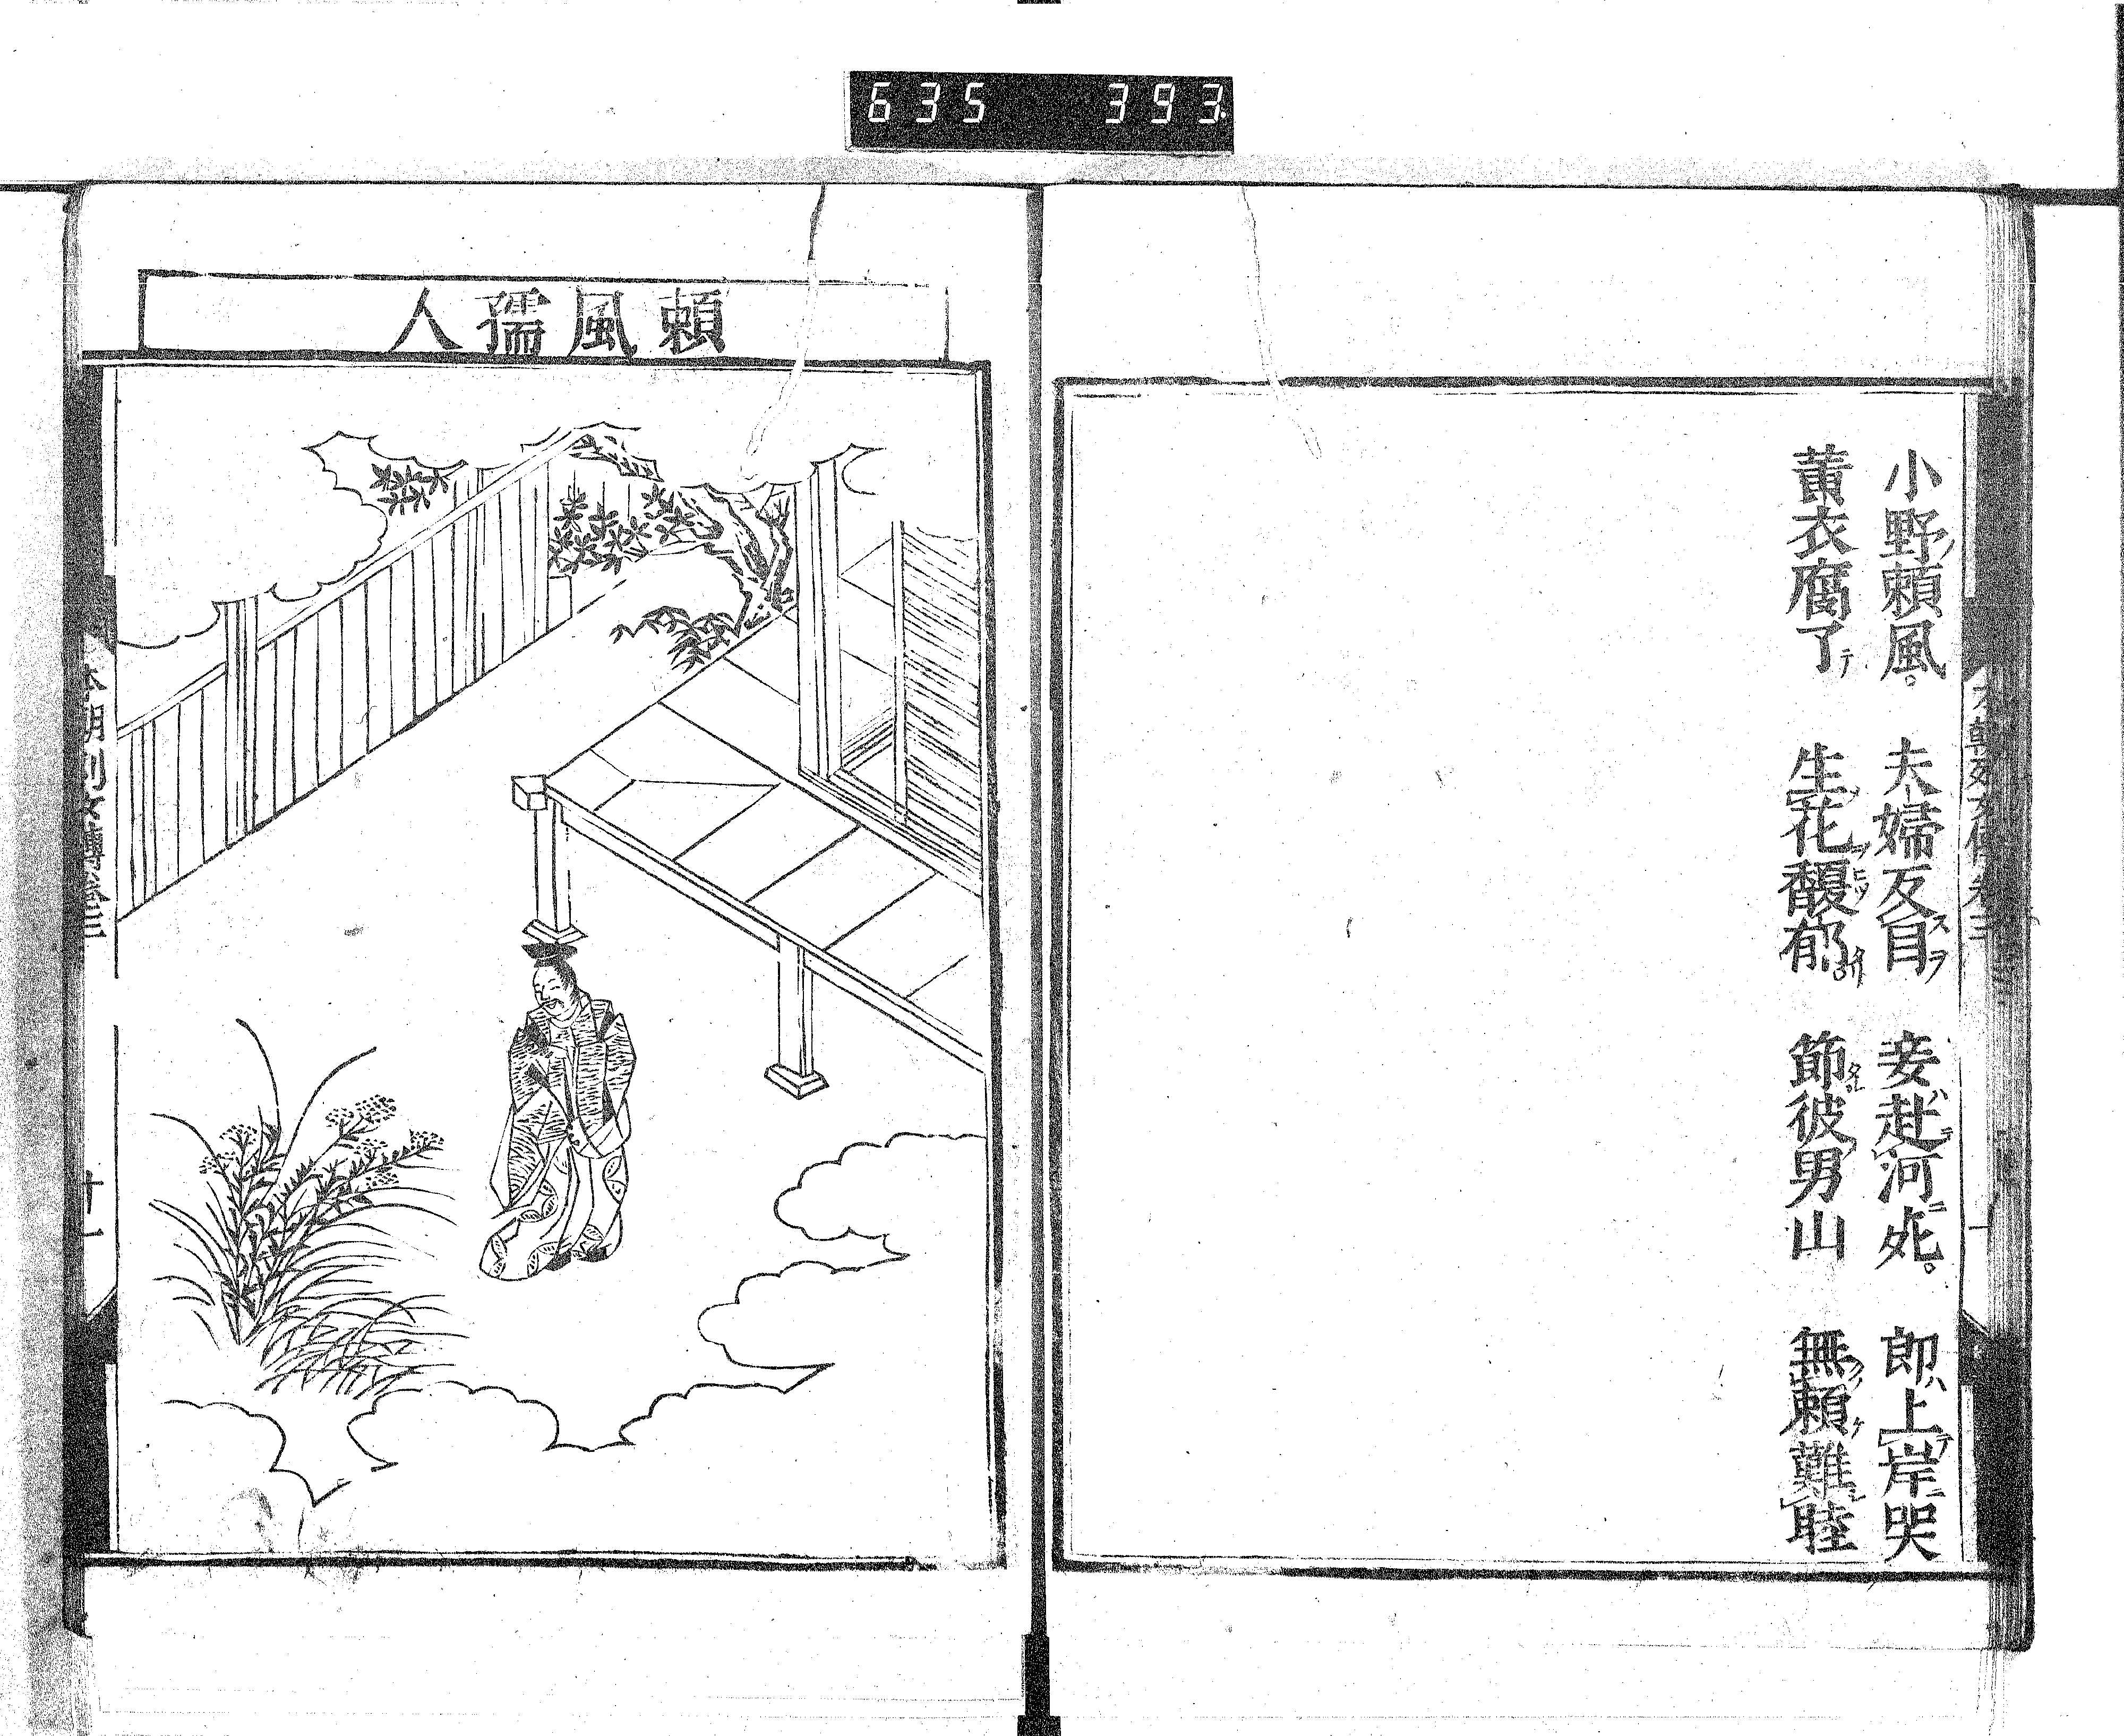 635 393
小野頼風。夫婦反目妾赴河死。郎上岸哭
黄衣腐了生花馥郁節彼男山無頼難睦
頼風孺人
本朝列女傳卷三
十一